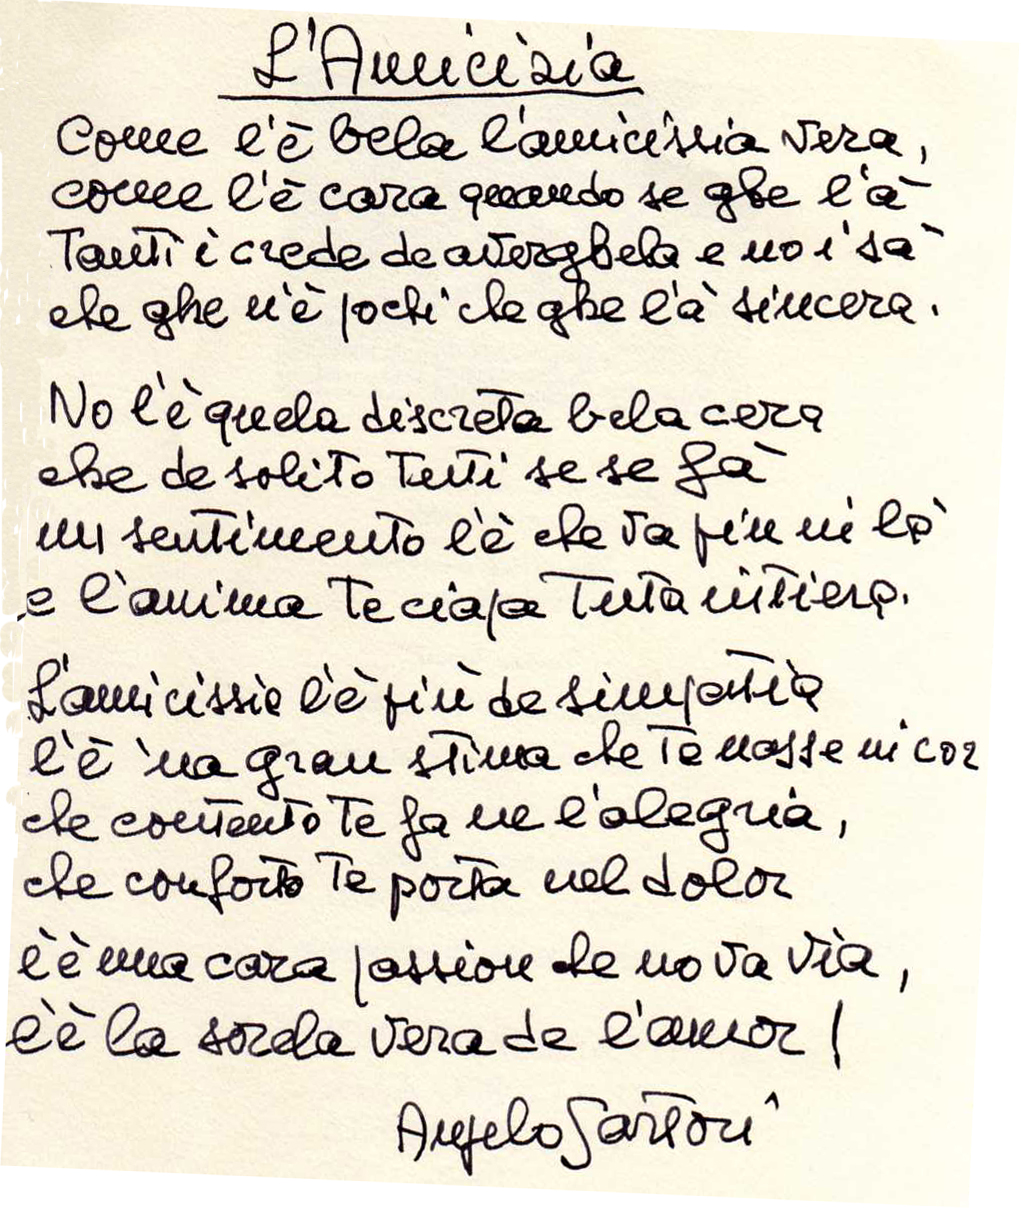 L'Amicizia
Come l'è bela l'amicissia vera,
come l'è cara quando se ghe l'à
Tanti i crede de averghela e no i sà
che ghe n'è pochi che ghe l'à sincera.
No l'è quela discreta bela cera
che de solito tuti se se fà
un sentimento l'è che va fin in là
e l'anima te ciapa tuta intiera.
L'amicissia l'è più de simpatia
l'è 'na gran stima che te nasse in cor
che contento te fa ne l'alegria,
che conforto te porta nel dolor
l'è una cara passion che no va via,
l'è la sorela vera de l'amor!
Angelo Sartori